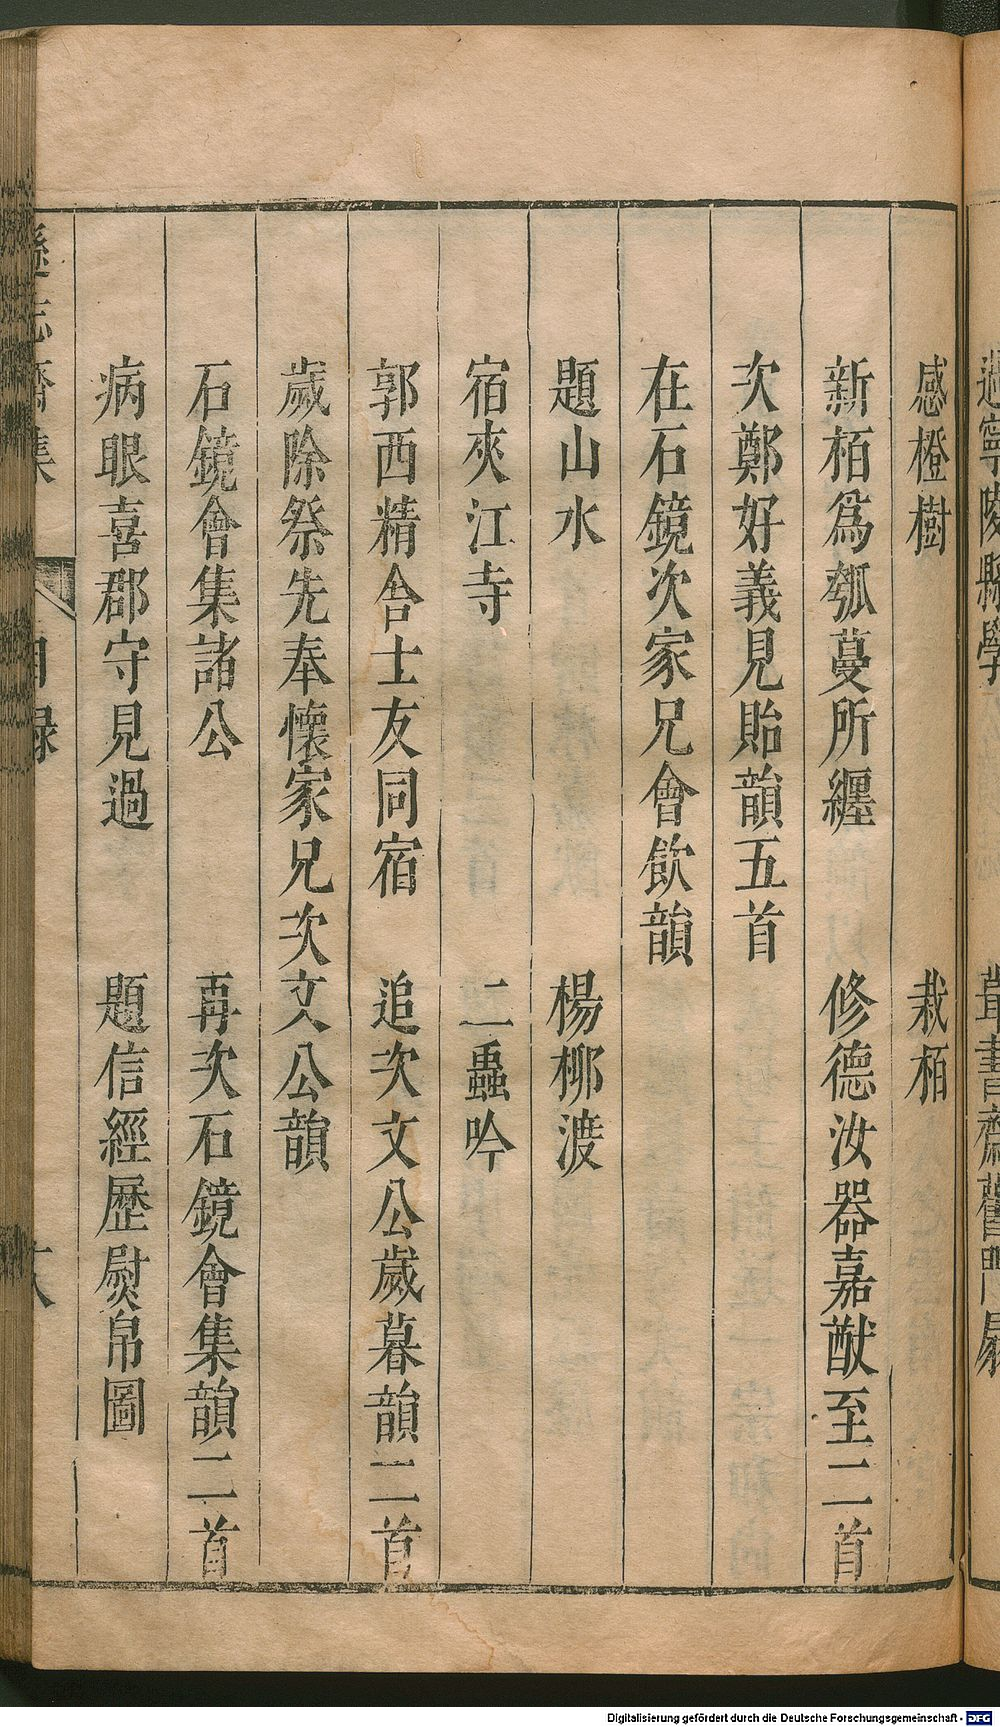 感橙樹　栽栢
新栢爲瓠蔓所纏　修德汝器嘉猷至二首
次鄭好義見貽韻五首
在石鏡次家兄會飲韻
題山水　楊柳渡
宿夾江寺　二蟲吟
郭西精舍士友同宿　追次文公歲暮韻二首
歲除祭先奉懷家兄次文公韻
石鏡會集諸公　再次石鏡會集韻二首
病眼喜郡守見過　題信經歷熨帛圖
遜志齋集　目録
Digitalisierung gefördert durch die Deutsche Forschungsgemeinschaft - DFG